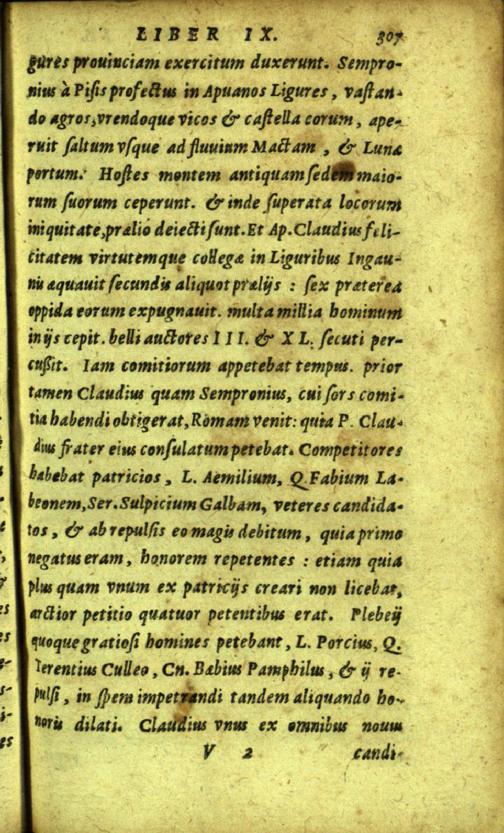 LIBER IX. 307
gures prouinciam exercitum duxerunt. Sempro-
nius à Pisis profectus in Apuanos Ligures, vastan-
do agros, vrendoque vicos & castella eorum, ape-
ruit saltum vsque ad fluuium Mactam, & Lunæ
portum. Hostes montem antiquam sedem maio-
rum suorum ceperunt. & inde superata locorum
iniquitate, prælio deiecti sunt. Et Ap. Claudius feli-
citatem virtutemque collegæ in Liguribus Ingau-
nis æquauit secundis aliquot prælijs : sex præterea
oppida eorum expugnauit. multa millia hominum
in ijs cepit. belli auctores III. & XL. secuti per-
cussit. Iam comitiorum appetebat tempus. prior
tamen Claudius quam Sempronius, cui sors comi-
tia habendi obtigerat, Romam venit: quia P. Clau-
dius frater eius consulatum petebat. Competitores
habebat patricios, L. Aemilium, Q. Fabium La-
beonem, Ser. Sulpicium Galbam, veteres candida-
tos, & ab repulsis eo magis debitum, quia primo
negatus eram, honorem repetentes : etiam quia
plus quam vnum ex patricijs creari non licebat,
arctior petitio quatuor petentibus erat. Plebeij
quoque gratiosi homines petebant, L. Porcius, Q.
Terentius Culleo, Cn. Bæbius Pamphilus, & ij re-
pulsi, in spem impetrandi tandem aliquando ho-
noris dilati. Claudius vnus ex omnibus nouus
V 2 candi-